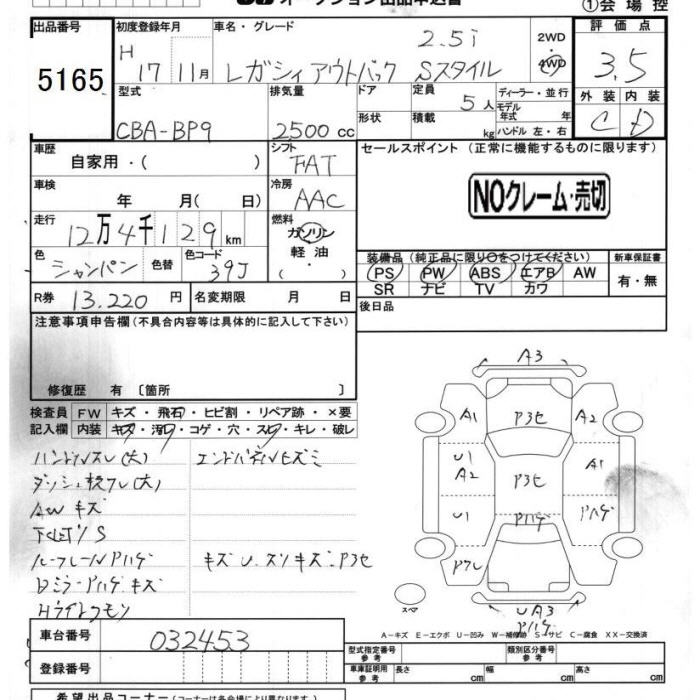 オークション出品申込書 ①会場控
出品番号 初度登録年月 車名・グレード 評価点
5165
H 17 11月
2.5i 2WD
レガシィアウトバック Sスタイル 4WD
3.5
型式 排気量 ドア 定員 5人 ディーラー・並行 外装 内装
モデル年式 年
CBA-BP9 2500cc 形状 積載 kg ハンドル 左・右 C D
車歴 シフト セールスポイント (正常に機能するものに限ります)
自家用・( ) FAT
車検 冷房
年 月( 日) AAC
NOクレーム・売切
走行 燃料
12万4千129km ガソリン
軽油
色 色替 色コード
シャンパン 39J
装備品(純正品に限り○をつけてください) 新車保証書
PS PW ABS エアB AW 有・無
SR ナビ TV カワ
R券 13.220円 名変期限 月 日 後日品
注意事項申告欄(不具合内容等は具体的に記入して下さい)
修復歴 有〔箇所 〕
検査員 FW キズ・飛石・ヒビ割・リペア跡・×要
記入欄 内装 キズ・汚レ・コゲ・穴・スレ・キレ・破レ
ハンドルスレ(大)
AWキズ
下廻リS
ルーフレールPハゲ キズU.スリキズ.P3セ
DミラーPハゲ.キズ
A3
A1 P3セ A2
U1 A1
A2 P3セ
U1 Pハゲ Pハゲ
UA3
Pハゲ
スペア
A-キズ E-エクボ U-凹み W-補修跡 S-サビ C-腐食 XX-交換済
車台番号 032453
登録番号
型式指定番号 参考 類別区分番号 参考
車庫証明用 参考 長さ cm 幅 cm 高さ cm
希望出品コーナー(コーナー名は各会場により異なります)